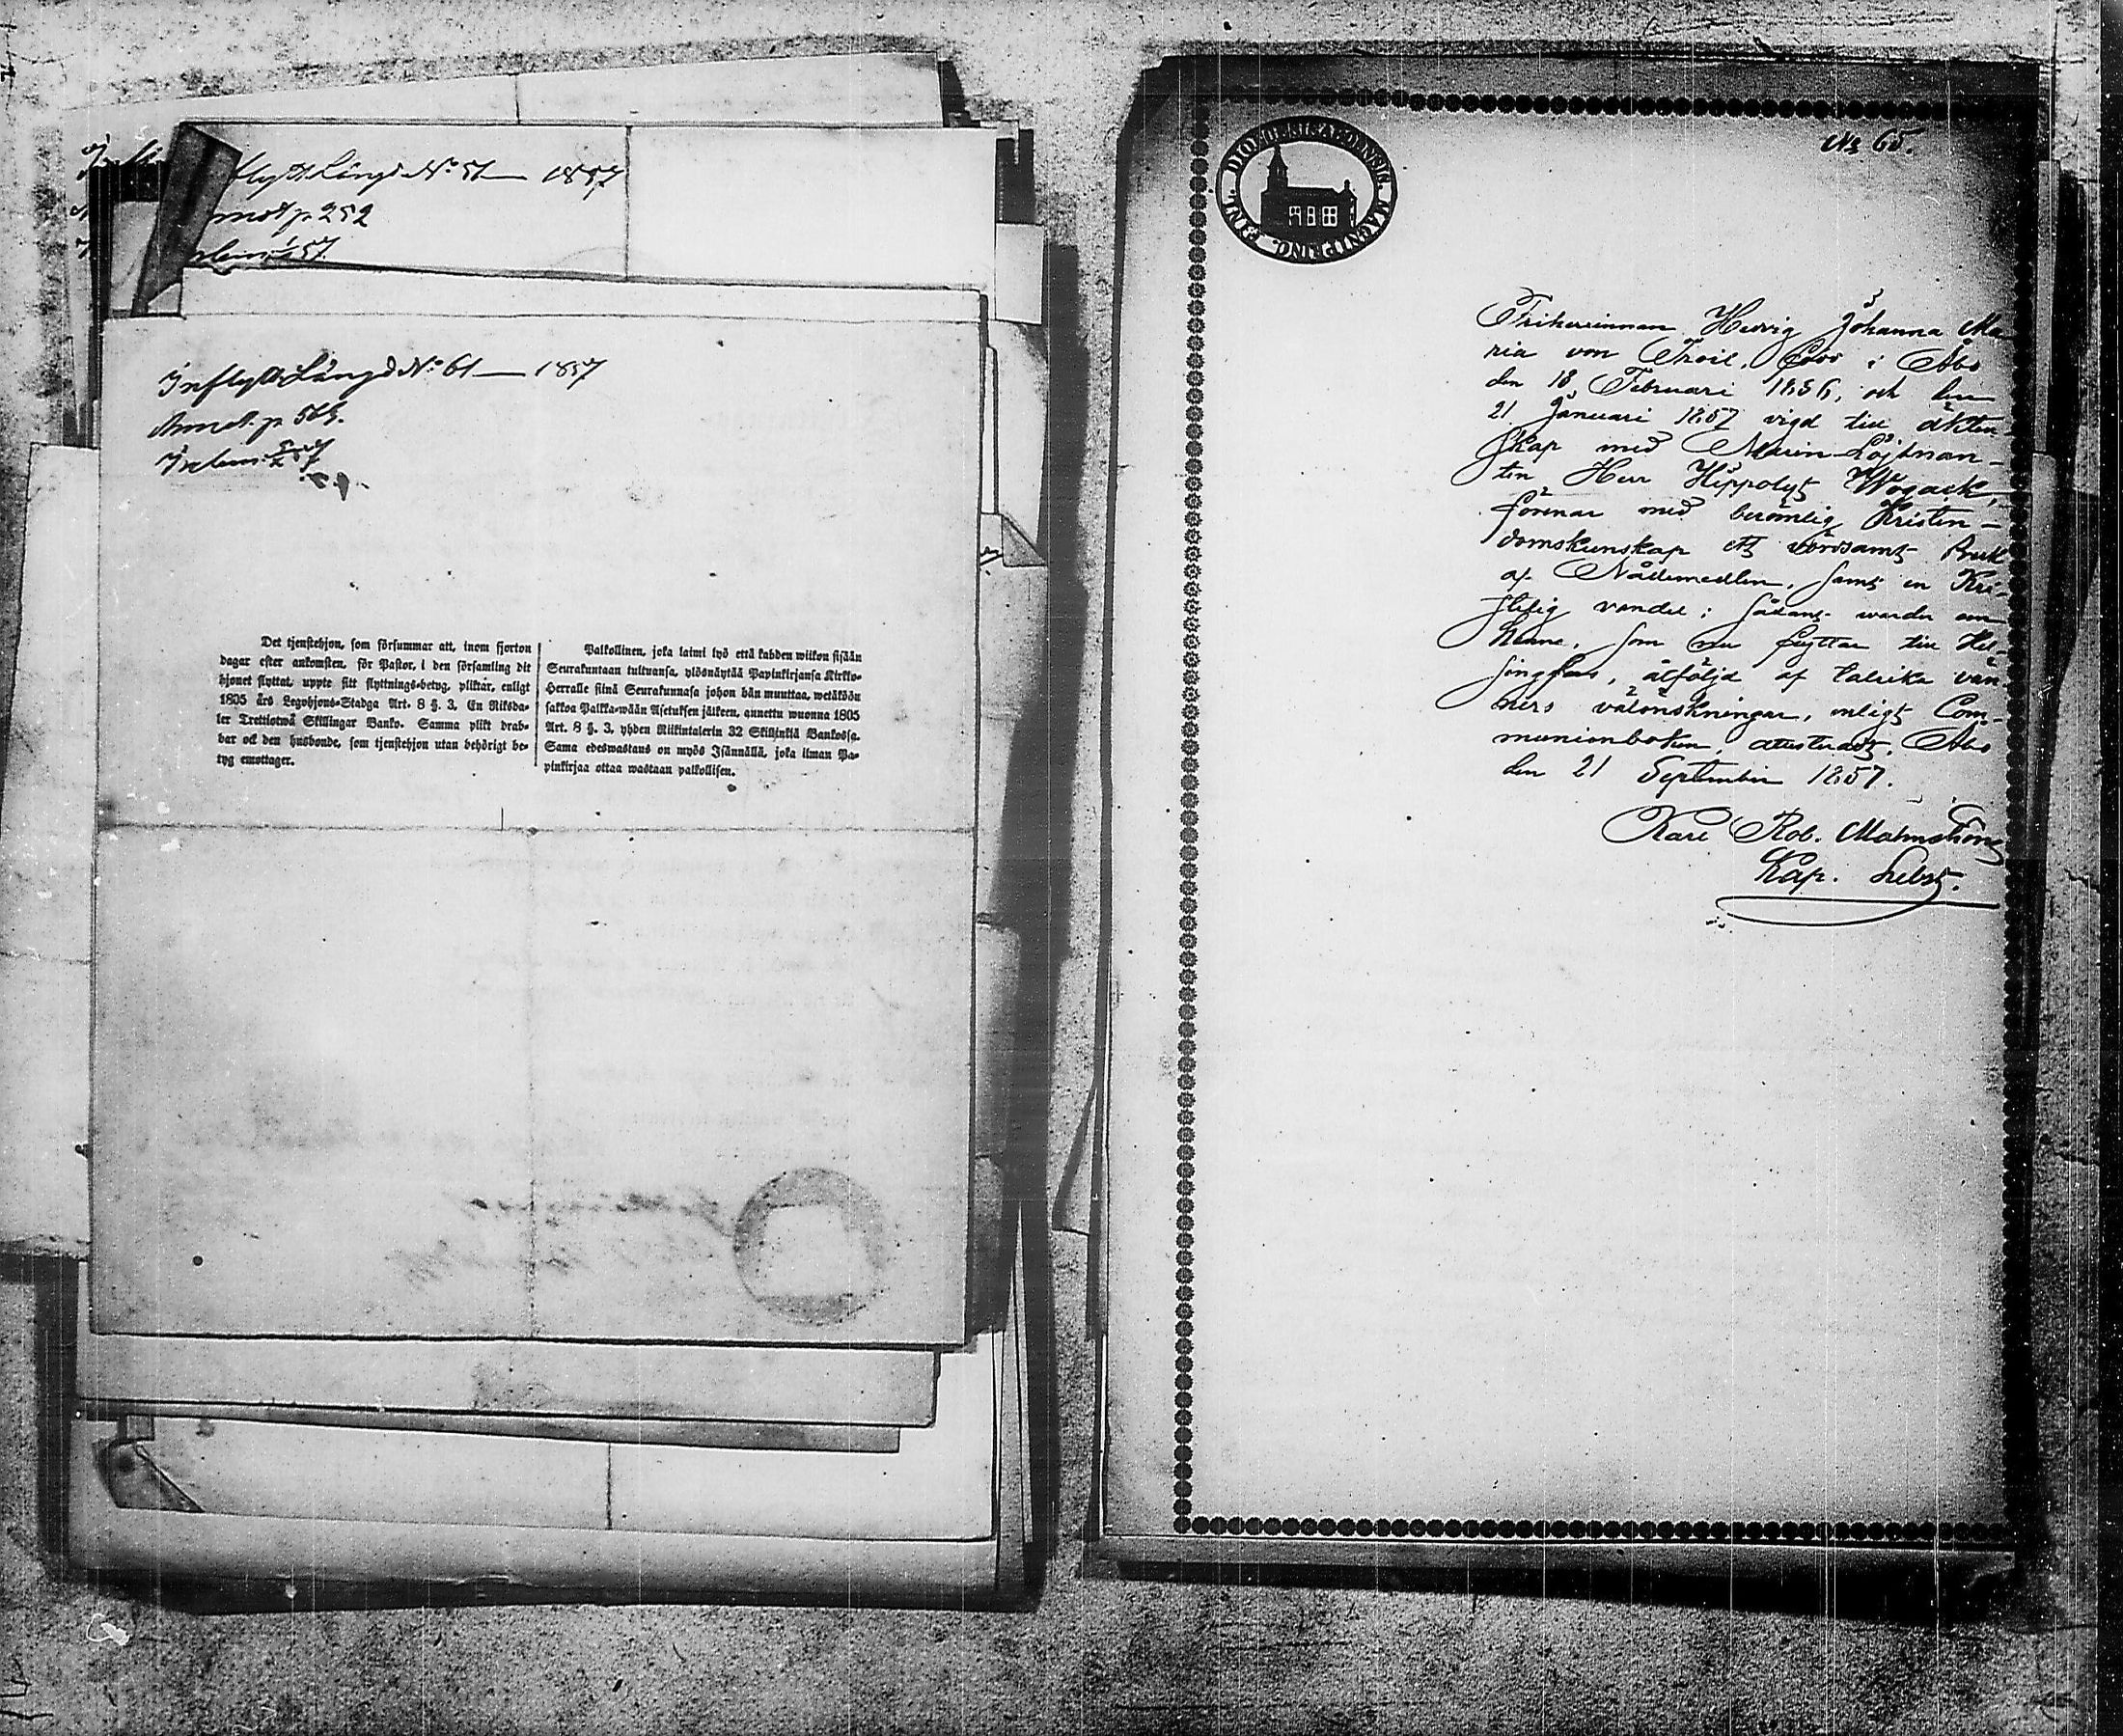 Inflyttn Längd No 51 — 1857
Annot p 252
57.
Inflyttn Längd No 61 — 1857
Annot. p.
Det tjenstehjon, som försummar att, inom fjorton
dagar efter ankomsten, för Pastor, i den församling dit
hjonet flyttat, uppte sitt flyttnings-betyg, pliktar, enligt
1805 års Legohjons-Stadga Art. 8 §. 3, En Riksda-
ler Trettiotwå Skillingar Banko. Samma plikt drab-
bar ock den husbonde, som tjenstehjon utan behörigt be-
tyg emottager.
Palkollinen, joka laimi lyö että kahden wiikon sisään
Seurakuntaan tultuansa, ylösnäytää Papinkirjansa Kirkko-
Herralle siinä Seurakunnasa johon hän muuttaa, wetäköön
sakkoa Palkka-wään Asetuksen jälkeen, annettu wuonna 1805
Art. 8 §. 3, yhden Riikintalerin 32 Skillinkiä Bankossa.
Sama edeswastaus on myös Isännällä, joka ilman Pa-
pinkirjaa ottaa wastaan palkollisen.
№ 65.
DIOECESIS ABOENSIS. MAGNI PRINC. FINL.
Friherrinnan Hedvig Johanna Ma-
ria von Troil, född i Åbo
den 18 Februari 1836, och den
21 Januari 1857 vigd till äkten-
skap med Marin-Löjtnan-
ten Herr Hippolyt Wogack,
förenar med berömlig Kristen-
domskunskap ett vördsamt bruk
af Nådemedlen, samt en Kri-
stelig vandel; sådant warder om
Henne, som nu flyttar till Hel-
singfors, åtföljd af talrika vän-
ners välönskningar, enligt Com-
munionboken, attesteradt. Åbo
den 21 September 1857.
Karl Rob. Malmström
Kap. Subst.